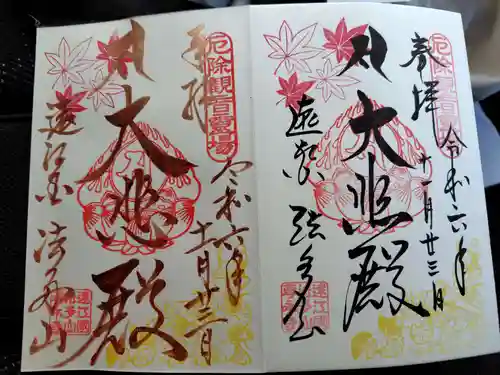 奉拝
厄除観音霊場
令和六年
十一月廿三日
大悲殿
遠江国 法多山
奉拝
厄除観音霊場
令和六年
十一月廿三日
大悲殿
遠江国 法多山